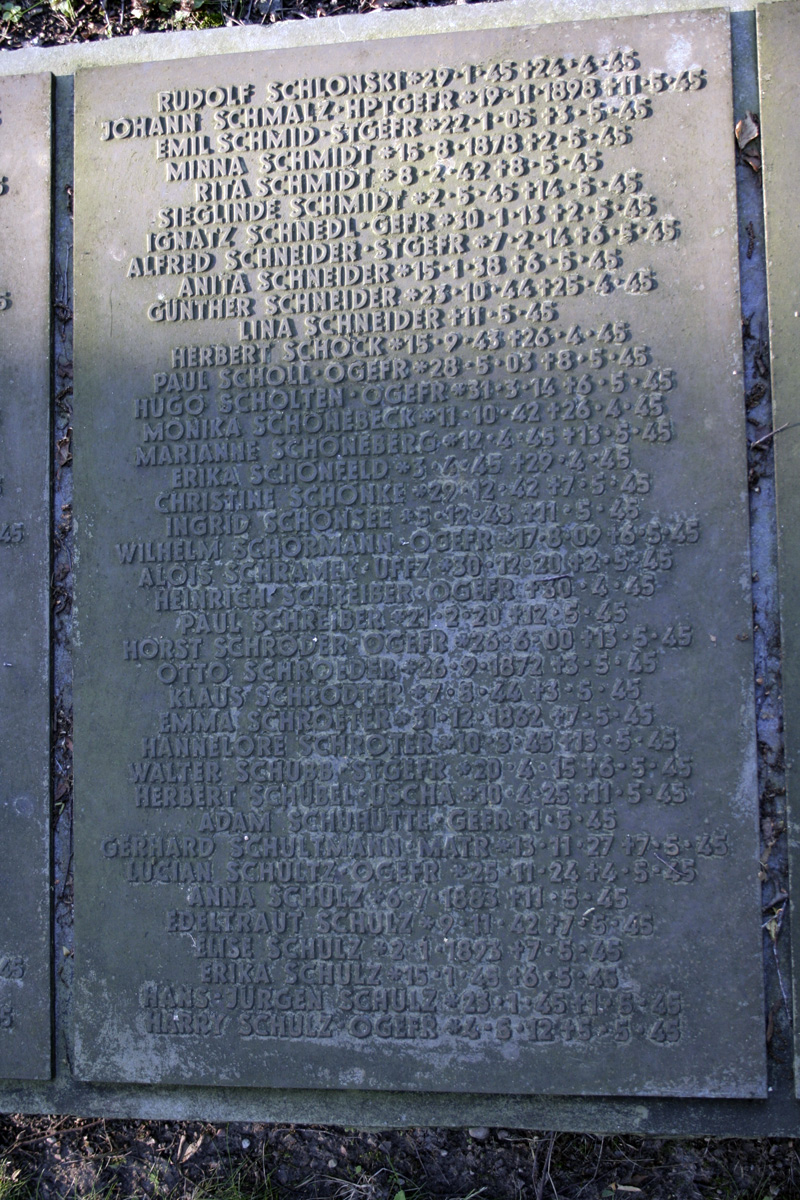 RUDOLF SCHLONSKI *29·1·45 †24·4·45
JOHANN SCHMALZ·HPTGEFR *19·11·1898 †11·5·45
EMIL SCHMID·STGEFR *22·1·05 †3·5·45
MINNA SCHMIDT *15·8·1878 †2·5·45
RITA SCHMIDT *8·2·42 †8·5·45
SIEGLINDE SCHMIDT *2·5·45 †14·5·45
IGNATZ SCHNEDL·GEFR *30·1·13 †2·5·45
ALFRED SCHNEIDER·STGEFR *7·2·14 †6·5·45
ANITA SCHNEIDER *15·1·38 †6·5·45
GÜNTHER SCHNEIDER *23·10·44 †25·4·45
LINA SCHNEIDER †11·5·45
HERBERT SCHOCK *15·9·43 †26·4·45
PAUL SCHOLL·OGEFR *28·5·03 †8·5·45
HUGO SCHOLTEN·OGEFR *31·3·14 †6·5·45
MONIKA SCHÖNEBECK *11·10·42 †26·4·45
MARIANNE SCHÖNEBERG *12·4·45 †13·5·45
ERIKA SCHÖNFELD *3·4·45 †29·4·45
CHRISTINE SCHÖNKE *29·12·42 †7·5·45
INGRID SCHÖNSEE *5·12·43 †11·5·45
WILHELM SCHORMANN·OGEFR *17·8·09 †6·5·45
ALOIS SCHRAMEK·UFFZ *30·12·20 †2·5·45
HEINRICH SCHREIBER·OGEFR †30·4·45
PAUL SCHREIBER *21·2·20 †12·5·45
HORST SCHRÖDER·OGEFR *26·6·00 †13·5·45
OTTO SCHROEDER *26·9·1872 †3·5·45
KLAUS SCHRÖDTER *7·3·44 †3·5·45
EMMA SCHROETER *31·12·1862 †7·5·45
HANNELORE SCHRÖTER *10·3·45 †13·5·45
WALTER SCHUBB·STGEFR *20·4·15 †6·5·45
HERBERT SCHÜBEL·USCHA *10·4·25 †11·5·45
ADAM SCHUHÜTTE·GEFR †1·5·45
GERHARD SCHULTMANN·MATR *13·11·27 †7·5·45
LUCIAN SCHULTZ·OGEFR *25·11·24 †4·5·45
ANNA SCHULZ *6·7·1883 †11·5·45
EDELTRAUT SCHULZ *9·11·42 †7·5·45
ELISE SCHULZ *2·1·1893 †7·5·45
ERIKA SCHULZ *15·1·45 †6·5·45
HANS-JÜRGEN SCHULZ *23·1·45 †1·5·45
HARRY SCHULZ·OGEFR *4·6·12 †5·5·45